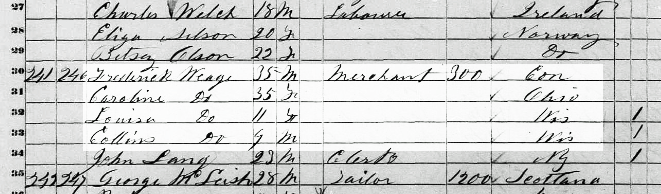 27 Charles Welch 18 M Labourer Ireland
28 Eliza Nelson 20 F Norway
29 Betsey Olson 22 F Do
30 241 246 Frederick Weage 35 M Merchant 300 Con
31 Caroline Do 35 F Ohio
32 Louisa Do 11 F Wis 1
33 Collins Do 9 M Wis 1
34 John Lang 23 M Clerk NY 1
35 242 247 George McLeish 28 M Tailor 1200 Scotland